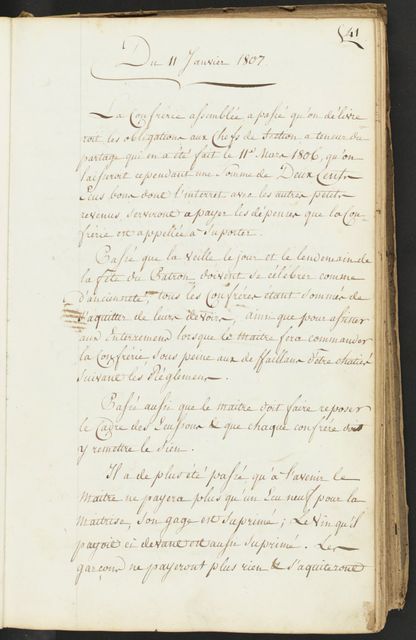 41
Du 11 Janvier 1807.
La Confrérie assemblée a passé qu'on délivre
roit les obligations aux Chefs de Section a teneur du
partage qui en a été fait le 11e Mars 1806, qu'on
laisseroit cependant une somme de Deux Cents
Ecus bons dont l'interret avec les autres petits
revenus serviront a payer les dépences que la Con-
frérie est appellée a suporter.
Passé que la veille le jour et le lendemain de
la fête du Patron doivent se célébrer comme
d'ancienneté, tous les Confrères étant sommés de
s'aquitter de leurs devoirs, ainsi que pour assister
aux Enterremens lorsque le Maitre fera commander
la Confrérie sous peine aux defaillans d'être chatiés
suivant les Réglemens.
Passé aussi que le maitre doit faire reposer
le Cadre des Ecussons & que chaque confrère doit
y remettre le sien.
Il a de plus été passé qu'à l'avenir le
Maitre ne payera plus qu'un Ecu neuf pour la
maitrise, son gage est suprimé; Le vin qu'il
payoit ci devant est aussi suprimé. Les
garçons ne payeront plus rien & s'aquiteront